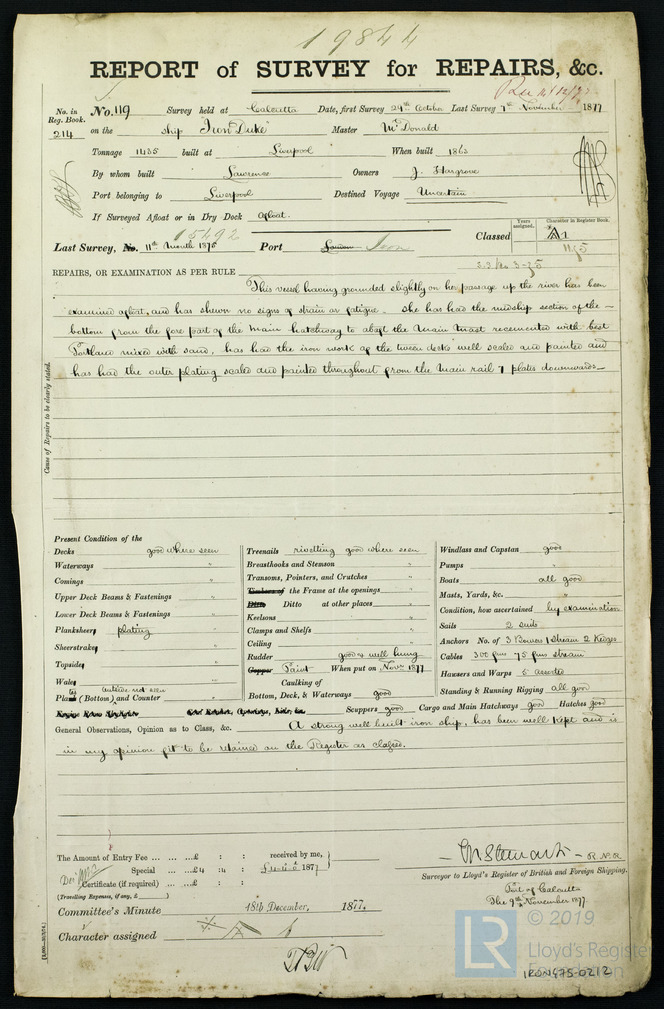 19844
REPORT of SURVEY for REPAIRS, &c.
No. in Reg. Book. No. 119 Survey held at Calcutta Date, first Survey 29th October Last Survey 7th November 1877
214 on the ship Iron Duke Master McDonald
Tonnage 1435 built at Liverpool When built 186
By whom built Lawrence Owners J. Hargrove
Port belonging to Liverpool Destined Voyage Uncertain
If Surveyed Afloat or in Dry Dock afloat.
15492
Years assigned. Character in Register Book.
Last Survey, No. 11th month 1875 Port Iron Classed A1
11,75
REPAIRS, OR EXAMINATION AS PER RULE
This vessel having grounded slightly on her passage up the river has been
examined afloat, and has shewn no signs of strain or fatigue. She has had the midship section of the
bottom from the fore part of the main hatchway to abaft the Main Mast recemented with best
Portland mixed with sand, has had the iron work of the tween decks well scaled and painted and
has had the outer plating scaled and painted throughout from the Main rail 7 plates downwards
Cause of Repairs to be clearly stated.
Present Condition of the
Decks good where seen
Waterways "
Comings "
Upper Deck Beams & Fastenings "
Lower Deck Beams & Fastenings "
Planksheer plating "
Sheerstrakes "
Topsides "
Wales "
outside not seen
Plank (Bottom) and Counter "
Treenails rivetting good where seen
Breasthooks and Stemson "
Transoms, Pointers, and Crutches "
Timbers of the Frame at the openings "
Ditto Ditto at other places "
Keelsons "
Clamps and Shelfs "
Ceiling "
Rudder good & well hung
Copper Paint When put on Novr 1877
Caulking of
Bottom, Deck, & Waterways good
Windlass and Capstan good
Pumps "
Boats all good
Masts, Yards, &c. "
Condition, how ascertained by examination
Sails 2 suits
Anchors No. of 3 Bowers 1 Stream 2 Kedges
Cables 300 fms 75 fms stream
Hawsers and Warps 5 assorted
Standing & Running Rigging all good
Scuppers good Cargo and Main Hatchways good Hatches good
General Observations, Opinion as to Class, &c. A strong well built iron ship, has been well kept and is
in my opinion fit to be retained on the Register as classed.
The Amount of Entry Fee ... £ : : received by me,
Special ... £4 : 4 : 1877
Certificate (if required) ... £ : :
(Travelling Expenses, if any, £ )
Committee's Minute 18th December, 1877.
Character assigned A 1
Stewart R.N.R
Surveyor to Lloyd's Register of British and Foreign Shipping.
Port of Calcutta
The 9th November 1877
LR © 2019
Lloyd's Register
Foundation
IRON475-0212